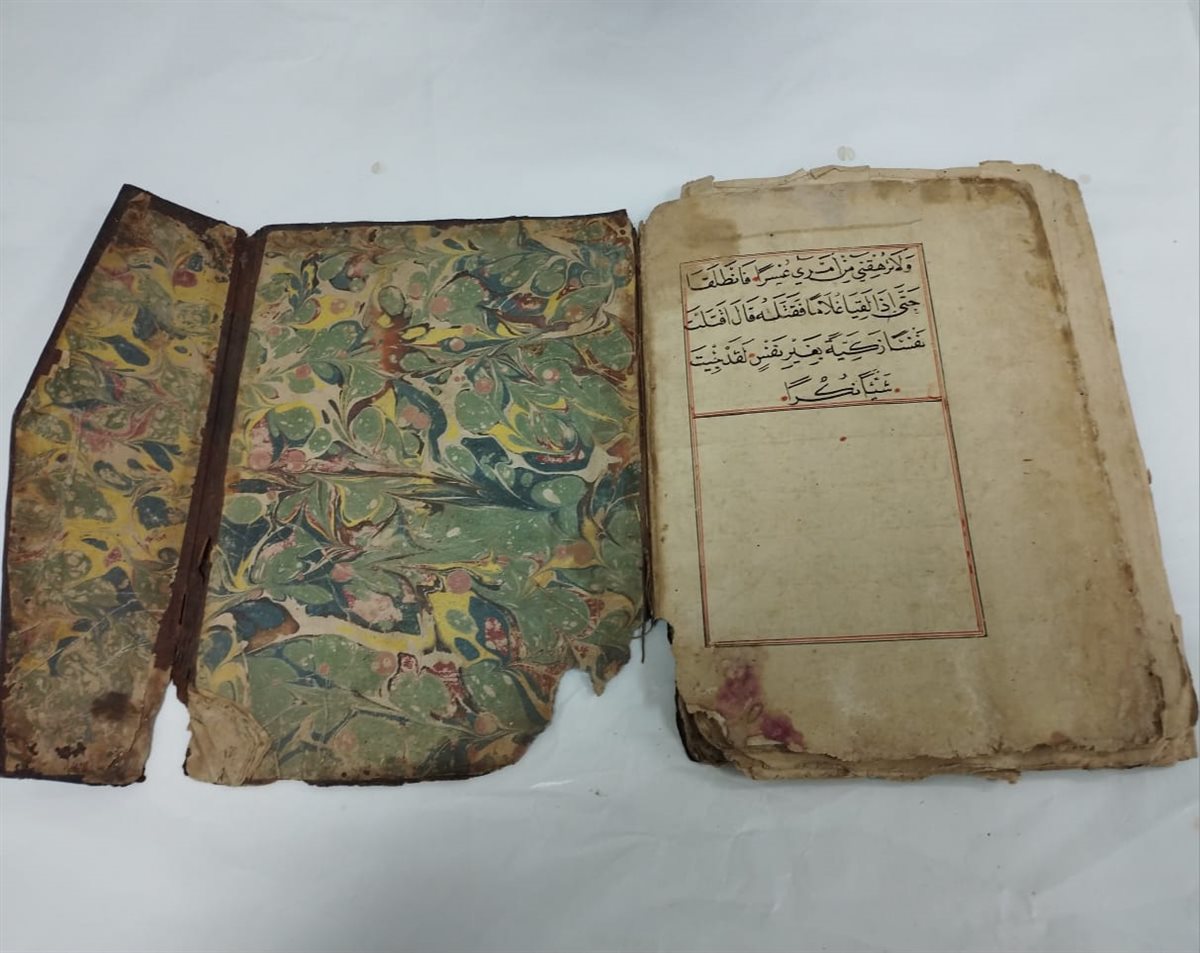 وَلَا تُرْهِقْنِي مِنْ اَمْرِي عُسْرًا فَانْطَلَقَا
حَتّٰى اِذَ لَقِيَا غُلَامًا فَقَتَلَهُ قَالَ اَقَتَلْتَ
نَفْسًا زَكِيَّةً بِغَيْرِ نَفْسٍ لَقَدْ جِئْتَ
شَيْئًا نُكْرًا